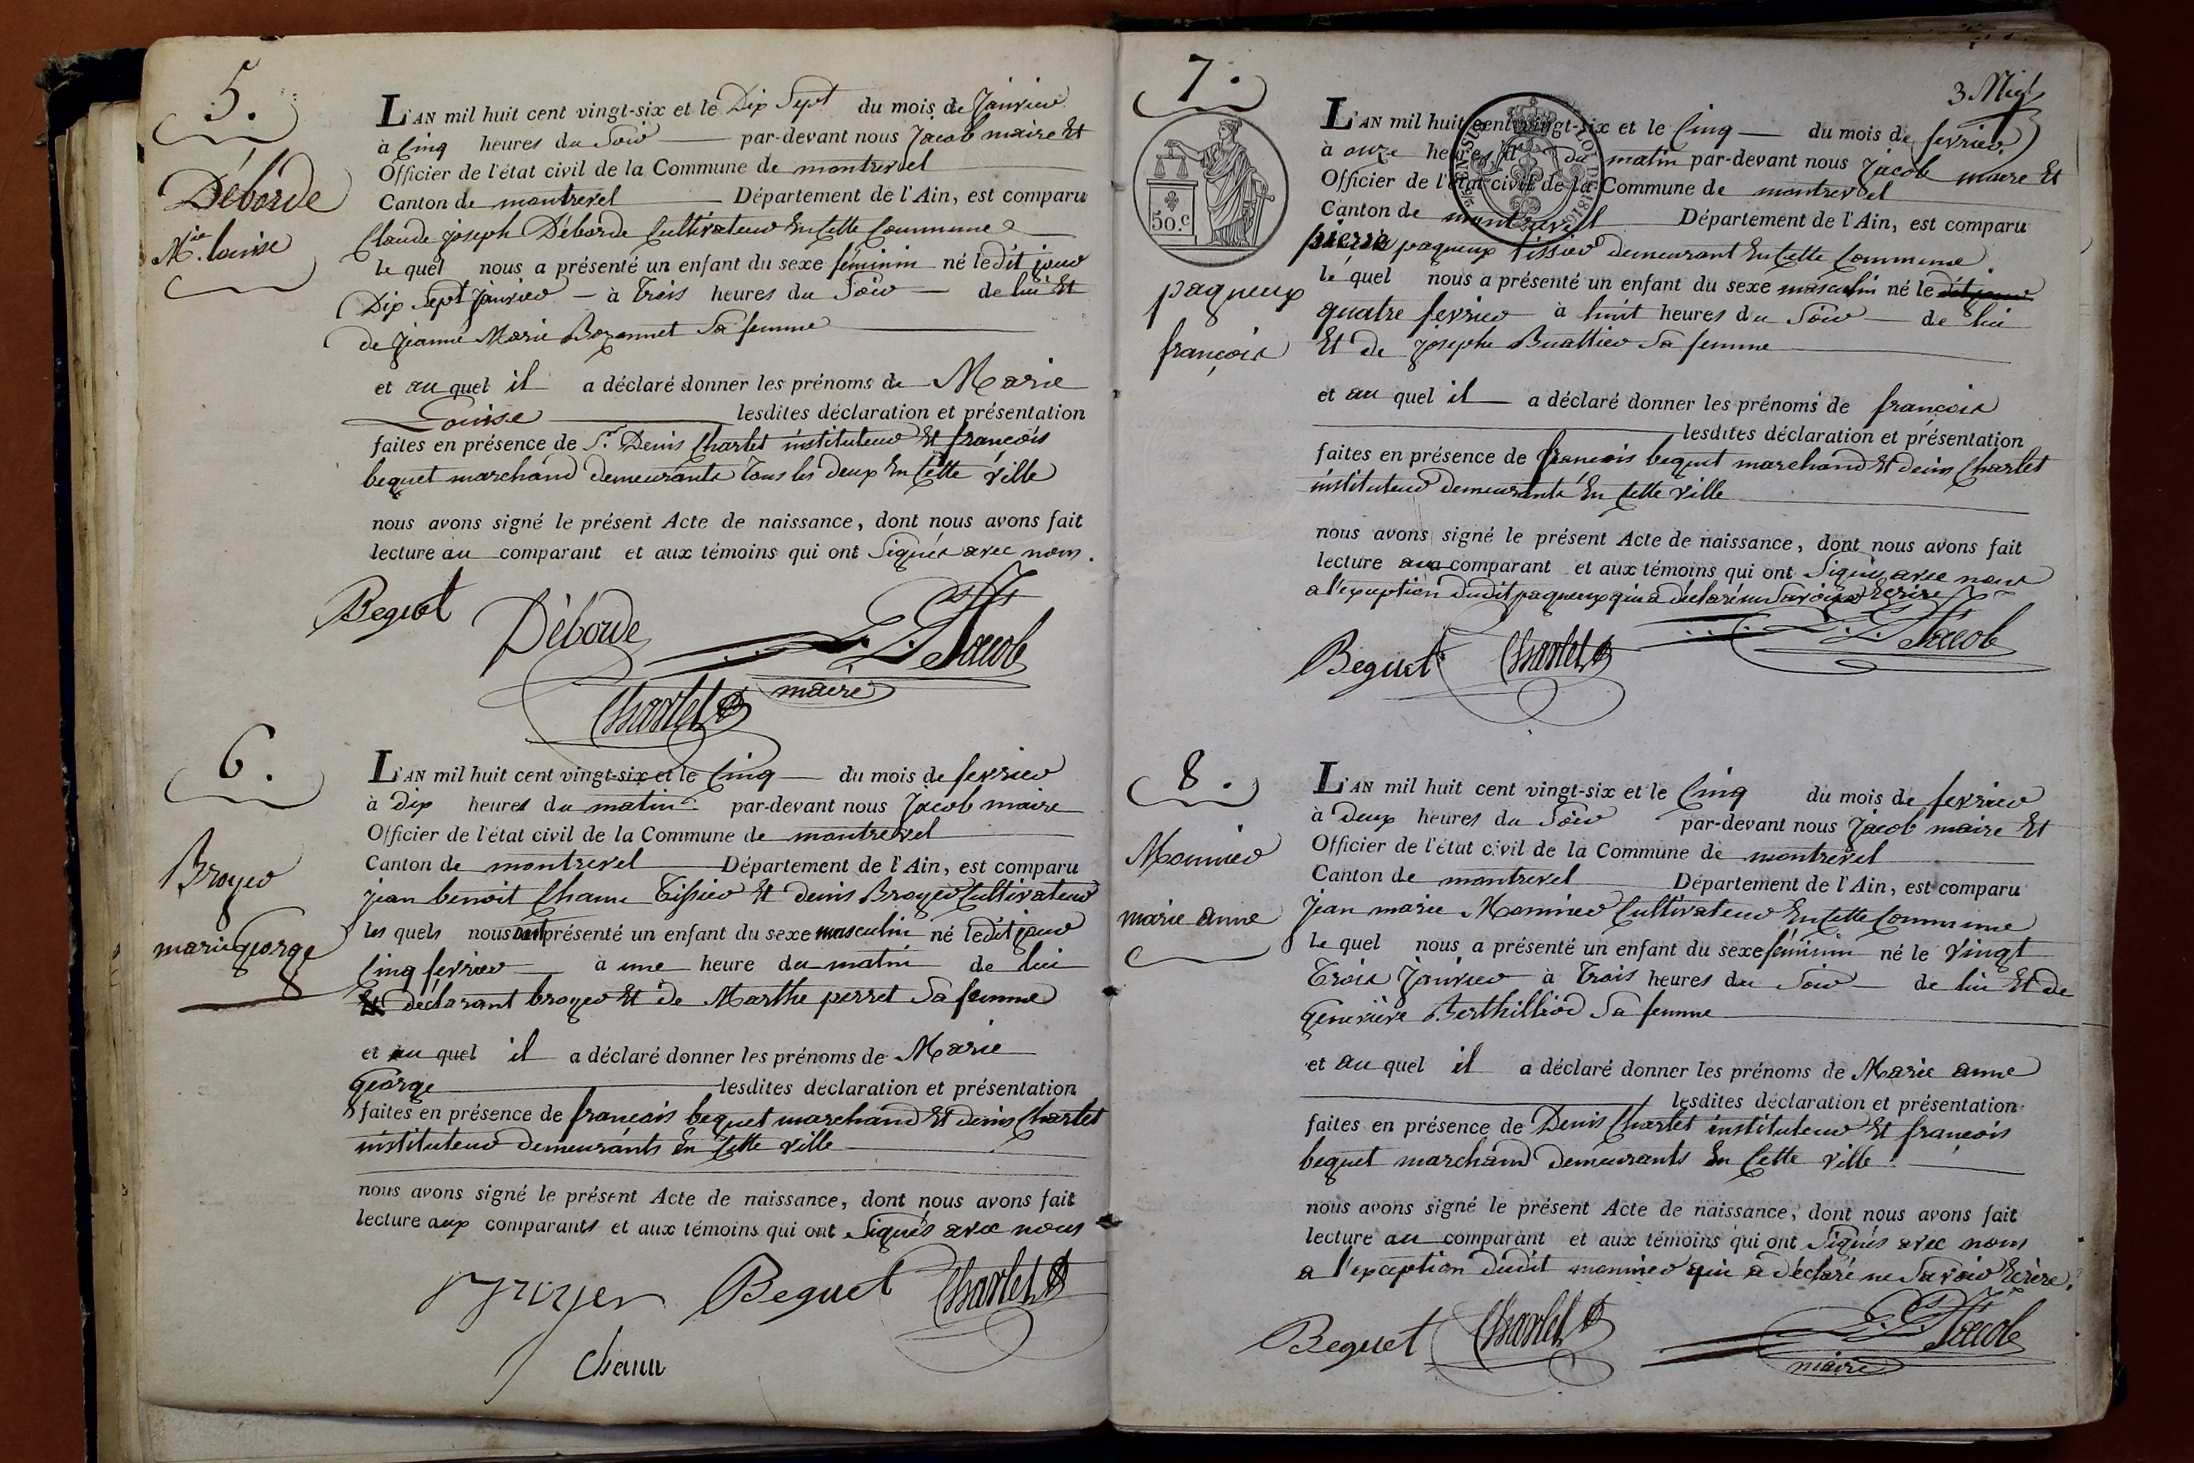 5.
Déborde
Mie. louise
L'AN mil huit cent vingt-six et le Dix Sept du mois de Janvier
à Cinq heures du Soir par-devant nous Jacob maire Et
Officier de l'état civil de la Commune de montrevel
Canton de montrevel Département de l'Ain, est comparu
Claude joseph Déborde Cultivateur En Cette Commune
le quel nous a présenté un enfant du sexe féminin né le dit jour
Dix Sept Janvier à Trois heures du Soir de lui Et
de Jeanne Marie Bozonnet Sa femme
et au quel il a déclaré donner les prénoms de Marie
Louise lesdites déclaration et présentation
faites en présence de Sr. Denis Charlet instituteur Et françois
bequet marchand demeurants tous les deux En Cette Ville
nous avons signé le présent Acte de naissance, dont nous avons fait
lecture au comparant et aux témoins qui ont Signés avec nous.
Bequet Déborde Jacob
maire
Charlet
6.
Broyer
marie George
L'AN mil huit cent vingt-six et le Cinq du mois de fevrier
à dix heures du matin par-devant nous Jacob maire
Officier de l'état civil de la Commune de montrevel
Canton de montrevel Département de l'Ain, est comparu
jean benoit Chanu Tissier Et denis Broyer Cultivateur
les quels nous ont présenté un enfant du sexe masculin né le dit jour
Cinq fevrier à une heure du matin de lui
déclarant broyer Et de Marthe perret Sa femme
et au quel il a déclaré donner les prénoms de Marie
George lesdites déclaration et présentation
faites en présence de francois bequet marchand Et denis Charlet
instituteur demeurants En Cette Ville
nous avons signé le présent Acte de naissance, dont nous avons fait
lecture aux comparants et aux témoins qui ont Signés avec nous
Broyer Bequet Charlet
Chanu
7.
3 Mig
50 c
paqueux
françois
L'AN mil huit cent vingt-six et le Cinq du mois de fevrier
à onze heures du matin par-devant nous Jacob maire Et
Officier de l'état civil de la Commune de montrevel
Canton de montrevel Département de l'Ain, est comparu
pierre paqueux Tissier demeurant En Cette Commune
le quel nous a présenté un enfant du sexe masculin né le dit jour
quatre fevrier à huit heures du Soir de lui
Et de Josephe Buattier Sa femme
et au quel il a déclaré donner les prénoms de françois
lesdites déclaration et présentation
faites en présence de francois bequet marchand Et denis Charlet
instituteur demeurants En Cette Ville
nous avons signé le présent Acte de naissance, dont nous avons fait
lecture au comparant et aux témoins qui ont Signés avec nous
a l'exception dudit paqueux qui a déclaré ne Savoir Ecrire
Bequet Charlet Jacob
8.
Monnier
marie anne
L'AN mil huit cent vingt-six et le Cinq du mois de fevrier
à Deux heures du Soir par-devant nous Jacob maire Et
Officier de l'état civil de la Commune de montrevel
Canton de montrevel Département de l'Ain, est comparu
Jean marie Monnier Cultivateur En Cette Commune
le quel nous a présenté un enfant du sexe féminin né le vingt
Trois Janvier à Trois heures du Soir de lui Et de
Genevieve Berthilliod Sa femme
et au quel il a déclaré donner les prénoms de Marie anne
lesdites déclaration et présentation
faites en présence de Denis Charlet instituteur Et françois
bequet marchand demeurants En Cette Ville
nous avons signé le présent Acte de naissance, dont nous avons fait
lecture au comparant et aux témoins qui ont Signés avec nous
a l'exception dudit monnier qui a déclaré ne Savoir Ecrire.
Bequet Charlet Jacob
maire